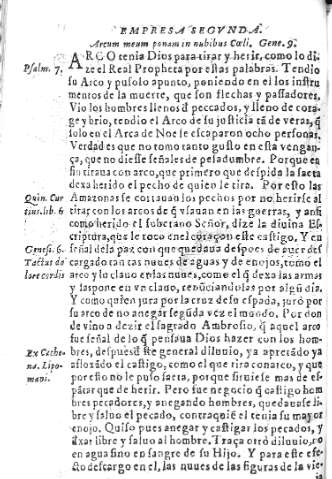 EMPRESA SEGVNDA.
Arcum meum ponam in nubibus Cœli. Gene. 9.
Psalm. 7.
ARCO tenia Dios para tirar y herir, como lo di-
ze el Real Propheta por estas palabras. Tendio
su Arco y pusolo apunto, poniendo en el los instru
mentos de la muerte, que son flechas y passadores.
Vio los hombres llenos đ peccados, y lleno de cora-
ge y brio, tendio el Arco de su justicia tã de veras, q̃
solo en el Arca de Noe se escaparon ocho personas.
Verdad es que no tomo tanto gusto en esta vengan-
ça, que no diesse señales de pesadumbre. Porque en
fin tiraua con arco, que primero que despida la saeta
dexa herido el pecho de quien le tira. Por esto las
Quin. Cur
tius. lib. 6
Amazonas se cortauan los pechos por no herirse al
tirar con los arcos de q̃ vsauan en las guerras, y ansi
como herido el soberano Señor, dize la diuina Es
criptura, que le toco en el coraçon este castigo. Y en
Genesi. 6.
Tactus do
lore cordis
señal de la paz con que quedaua despues de auer des
cargado tan tas nuues de aguas y de enojos, tomo el
arco y lo clauo en las nuues, como el q̃ dexa las armas
y las pone en vn clauo, renũciandolas por algũ dia.
Y como quien jura por la cruz de su espada, juró por
su arco de no anegar segũda vez el mundo. Por don
de vino a dezir el sagrado Ambrosio, q̃ aquel arco
fue señal de lo q̃ pensaua Dios hazer con los hom-
Ex Cathe
na. Lipo-
mani.
bres, despues đste general diluuio, ya apretãdo ya
afloxãdo el castigo, como el que tira con arco, y que
por esso no le puso saeta, porque siruiesse mas de es-
pãtar que de herir. Pero fue negocio q̃ castigo hom
bres pecadores, y anegando hombres, quedause li-
bre y saluo el pecado, contra quiẽ el tenia su mayor
enojo. Quiso pues anegar y castigar los pecados, y
đxar libre y saluo al hombre. Traça otro diluuio, no
en agua sino en sangre de su Hijo. Y para este efe-
sto descargo en el, las nuues de las figuras de la vie-